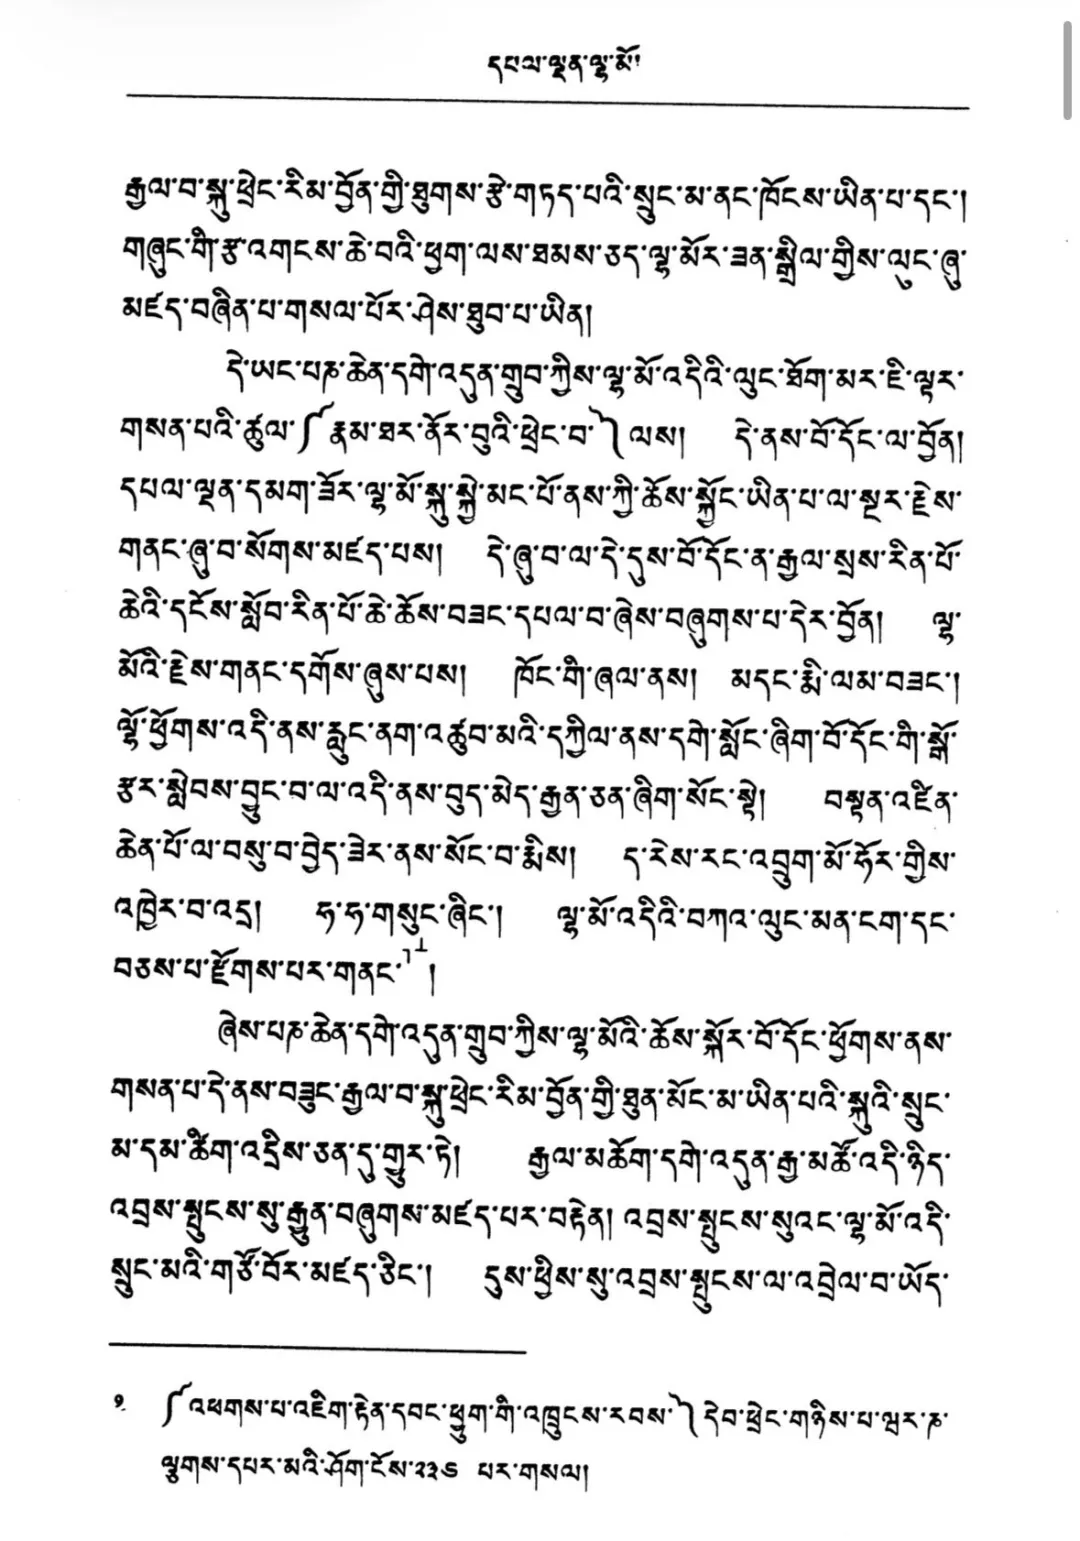 དཔལ་ལྡན་ལྷ་མོ།
རྒྱལ་བ་སྐུ་ཕྲེང་རིམ་བྱོན་གྱི་ཐུགས་རྩེ་གཏད་པའི་སྲུང་མ་ནང་ཁོངས་ཡིན་པ་དང་།
གཞུང་གི་རྩ་འགངས་ཆེ་བའི་ཕྱག་ལས་ཐམས་ཅད་ལྷ་མོར་ཟན་སྒྲིལ་གྱིས་ལུང་ཞུ་
མཛད་བཞིན་པ་གསལ་པོར་ཤེས་ཐུབ་པ་ཡིན།
དེ་ཡང་པཎ་ཆེན་དགེ་འདུན་གྲུབ་ཀྱིས་ལྷ་མོ་འདིའི་ལུང་ཐོག་མར་ཇི་ལྟར་
གསན་པའི་ཚུལ་༼རྣམ་ཐར་ནོར་བུའི་ཕྲེང་བ་༽ལས། དེ་ནས་བོ་དོང་ལ་བྱོན།
དཔལ་ལྡན་དམག་ཟོར་ལྷ་མོ་སྐུ་སྐྱེ་མང་པོ་ནས་ཀྱི་ཆོས་སྐྱོང་ཡིན་པ་ལ་སྔར་རྗེས་
གནང་ཞུ་བ་སོགས་མཛད་པས། དེ་ཞུ་བ་ལ་དེ་དུས་བོ་དོང་ན་རྒྱལ་སྲས་རིན་པོ་
ཆེའི་དངོས་སློབ་རིན་པོ་ཆེ་ཆོས་བཟང་དཔལ་བ་ཞེས་བཞུགས་པ་དེར་བྱོན། ལྷ་
མོའི་རྗེས་གནང་དགོས་ཞུས་པས། ཁོང་གི་ཞལ་ནས། མདང་རྨི་ལམ་བཟང་།
ལྷོ་ཕྱོགས་འདི་ནས་རླུང་ནག་འཚུབ་མའི་དཀྱིལ་ནས་དགེ་སློང་ཞིག་བོ་དོང་གི་སྒོ་
རྩར་སླེབས་བྱུང་བ་ལ་འདི་ནས་བུད་མེད་རྒྱན་ཅན་ཞིག་སོང་སྟེ། བསྟན་འཛིན་
ཆེན་པོ་ལ་བསུ་བ་བྱེད་ཟེར་ནས་སོང་བ་རྨིས། ད་རེས་རང་འབྲུག་མོ་ཧོར་གྱིས་
འཁྱེར་བ་འདྲ། ཧ་ཧ་གསུང་ཞིང་། ལྷ་མོ་འདིའི་བཀའ་ལུང་མན་ངག་དང་
བཅས་པ་རྫོགས་པར་གནང་་༡།
ཞེས་པཎ་ཆེན་དགེ་འདུན་གྲུབ་ཀྱིས་ལྷ་མོའི་ཆོས་སྐོར་བོ་དོང་ཕྱོགས་ནས་
གསན་པ་དེ་ནས་བཟུང་རྒྱལ་བ་སྐུ་ཕྲེང་རིམ་བྱོན་གྱི་ཐུན་མོང་མ་ཡིན་པའི་སྐུའི་སྲུང་
མ་དམ་ཚིག་འདྲིས་ཅན་དུ་གྱུར་ཏེ། རྒྱལ་མཆོག་དགེ་འདུན་རྒྱ་མཚོ་འདི་ཉིད་
འབྲས་སྤུངས་སུ་རྒྱུན་བཞུགས་མཛད་པར་བརྟེན། འབྲས་སྤུངས་སུའང་ལྷ་མོ་འདི་
སྲུང་མའི་གཙོ་བོར་མཛད་ཅིང་། དུས་ཕྱིས་སུ་འབྲས་སྤུངས་ལ་འབྲེལ་བ་ཡོད་
༡ ༼འཕགས་པ་འཇིག་རྟེན་དབང་ཕྱུག་གི་འཁྲུངས་རབས་༽དེབ་ཕྲེང་གཉིས་པ་ཝར་ཎ་
ལྕགས་དཔར་མའི་ཤོག་ངོས་༢༣༦ པར་གསལ།